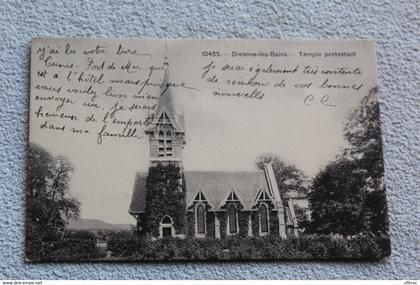 10455. - Divonne-les-Bains. - Temple protestant
J'ai vu votre livre
à l'hôtel mais puisque
vous voulez bien m'en
envoyer un, je serais
heureuse de l'emporter
dans ma famille
Je serai également très contente
de recevoir de vos bonnes
nouvelles
C. C.